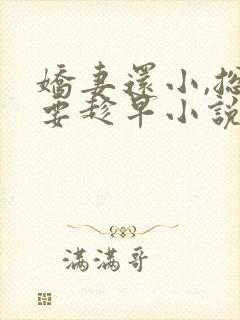 嬌妻還小,總
要趁早小說
滿滿哥